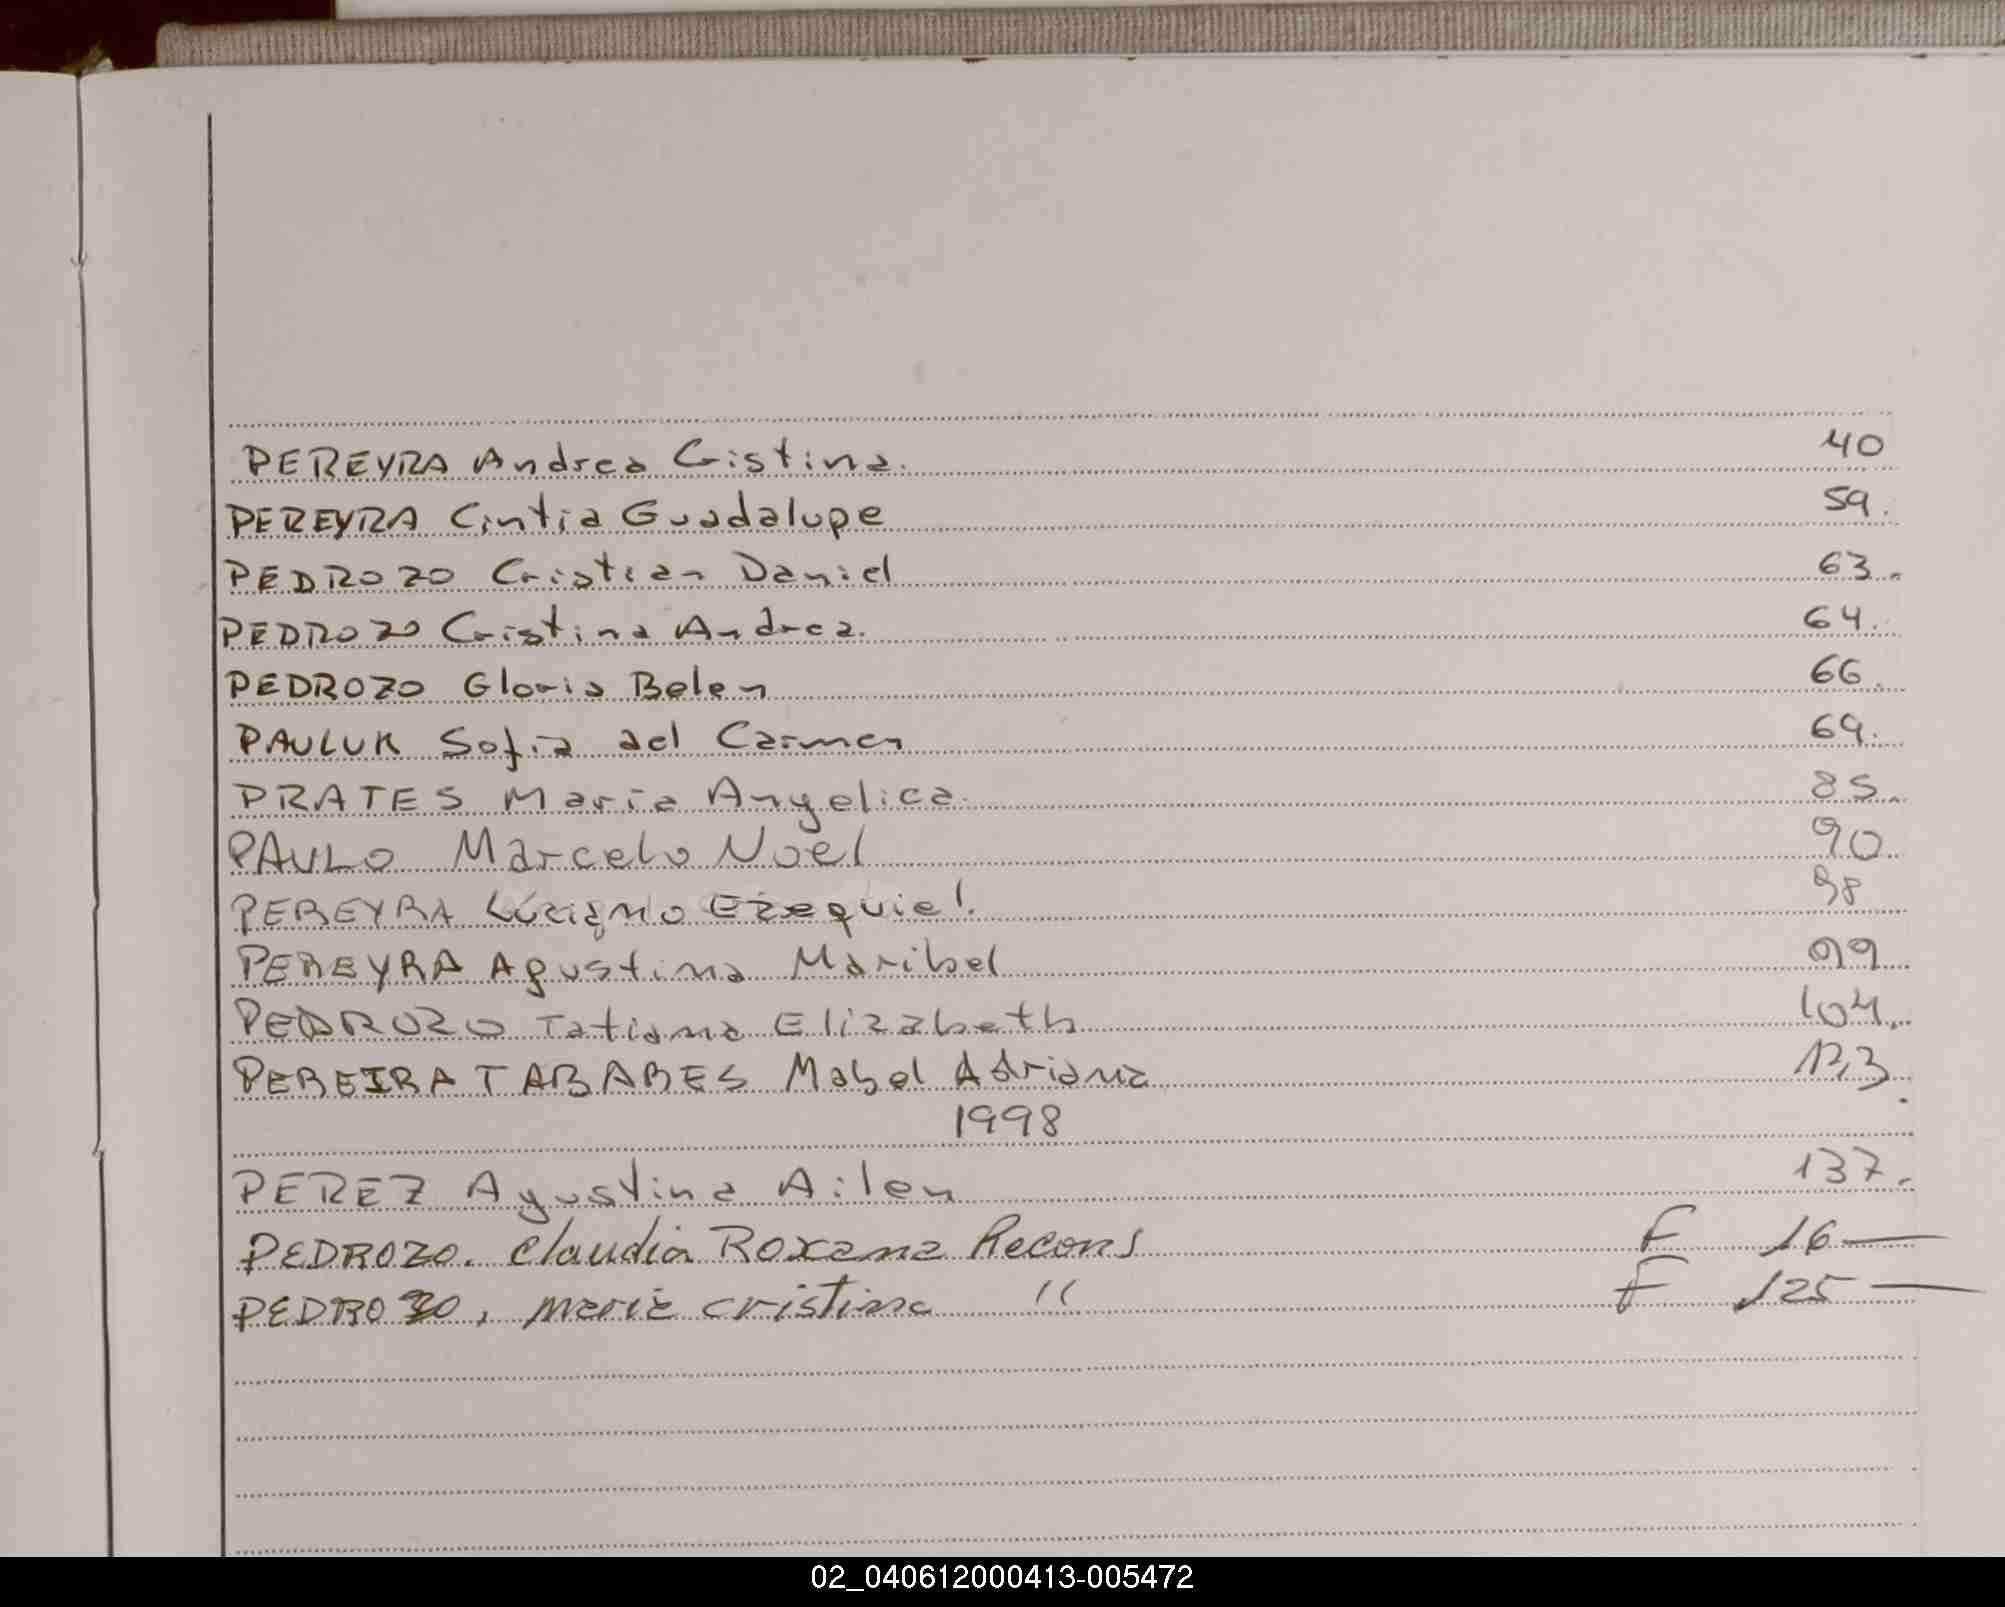 PEREYRA Andrea Cristina. 40
PEREYRA Cintia Guadalupe 59.
PEDROZO Cristian Daniel 63.
PEDROZO Cristina Andrea. 64.
PEDROZO Gloria Belen 66.
PAULUK Sofia del Carmen 69.
PRATES Maria Angelica. 85.
PAULO Marcelo Noel 90
PEREYRA Luciano Ezequiel. 98
PEREYRA Agustina Maribel 99
PEDROZO Tatiana Elizabeth 104.
PEREIRA TABARES Mabel Adriana 123.
1998
PEREZ Agustina Ailen 137.
PEDROZO. Claudia Roxana Recons F 16—
PEDROZO, Maria Cristina " F 125—
02_040612000413-005472